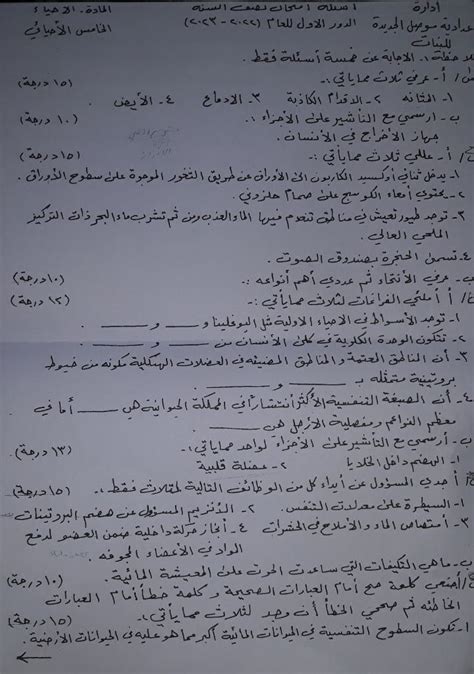 إدارة
أسئلة امتحان نصف السنة
المادة: الأحياء
إعدادية موصل الجديدة
الدور الأول للعام (٢٠٢٢ - ٢٠٢٣)
الخامس الأحيائي
للبنات
ملاحظة ١: الاجابة عن خمسة أسئلة فقط.
أ- عرفي ثلاث مما يأتي:- (١٥ درجة)
١- المثانه ٢- الاقدام الكاذبة ٣- الادماع ٤- الأيض.
ب- ارسمي مع التأشير على الأجزاء:- (١٠ درجة)
جهاز الأخراج في الأنسان.
أ- عللي ثلاث مما يأتي:- (١٥ درجة)
١- يدخل ثنائي أوكسيد الكاربون الى الأوراق عن طريق الثغور الموجودة على سطوح الأوراق.
٢- يحتوي أمعاء الكوسج على صمام حلزوني.
٣- توجد طيور تعيش في مناطق تنعدم فيها الماء العذب ومن ثم تشرب ماء البحر ذات التركيز
الملحي العالي.
٤- تسمى الحنجرة بصندوق الصوت.
ب- عرفي الأغتذاء ثم عددي أهم أنواعه:- (١٠ درجة)
أ املئي الفراغات لثلاث مما يأتي:- (١٢ درجة)
١- توجد الأسواط في الاحياء الاولية مثل اليوغلينا و ـــــ و ـــــ.
٢- تتكون الوحدة الكلوية في كلى الأنسان من ـــــ و ـــــ.
٣- أن المناطق المعتمة والمناطق المضيئه في العضلات الهيكلية مكونه من خيوط
بروتينية متمثله بـ ـــــ و ـــــ.
٤- أن الصبغة التنفسية الأكثر أنتشاراً في المملكة الحيوانية هي ـــــ أما في
معظم القواقع ومفصلية الأرجل هي ـــــ.
ب- أرسمي مع التأشير على الأجزاء لواحد مما يأتي:- (١٣ درجة).
١- الهضم داخل الخلايا ٢- عضلة قلبية
أ حددي المسؤول عن أداء كل من الوظائف التالية لثلاث فقط:- (١٥ درجة)
١- السيطرة على معدلات التنفس. ٢- الأنزيم المسؤول عن هضم البروتينات
٣- أمتصاص الماء والأملاح في الحشرات ٤- أنجاز حركة داخلية ضمن العضو لدفع
الأعضاء المجوفه.
ب- ماهي التكيفات التي ساعدت الحوت على المعيشة المائية. (١٠ درجة)
أ ضعي كلمة صح أمام العبارات الصحيحة و كلمة خطأ أمام العبارات
الخاطئه ثم صححي الخطأ أن وجد لثلاث مما يأتي:- (١٥ درجة)
١- تكون السطوح التنفسية في الحيوانات المائية أكبر مما هو عليه في الحيوانات الأرضية.